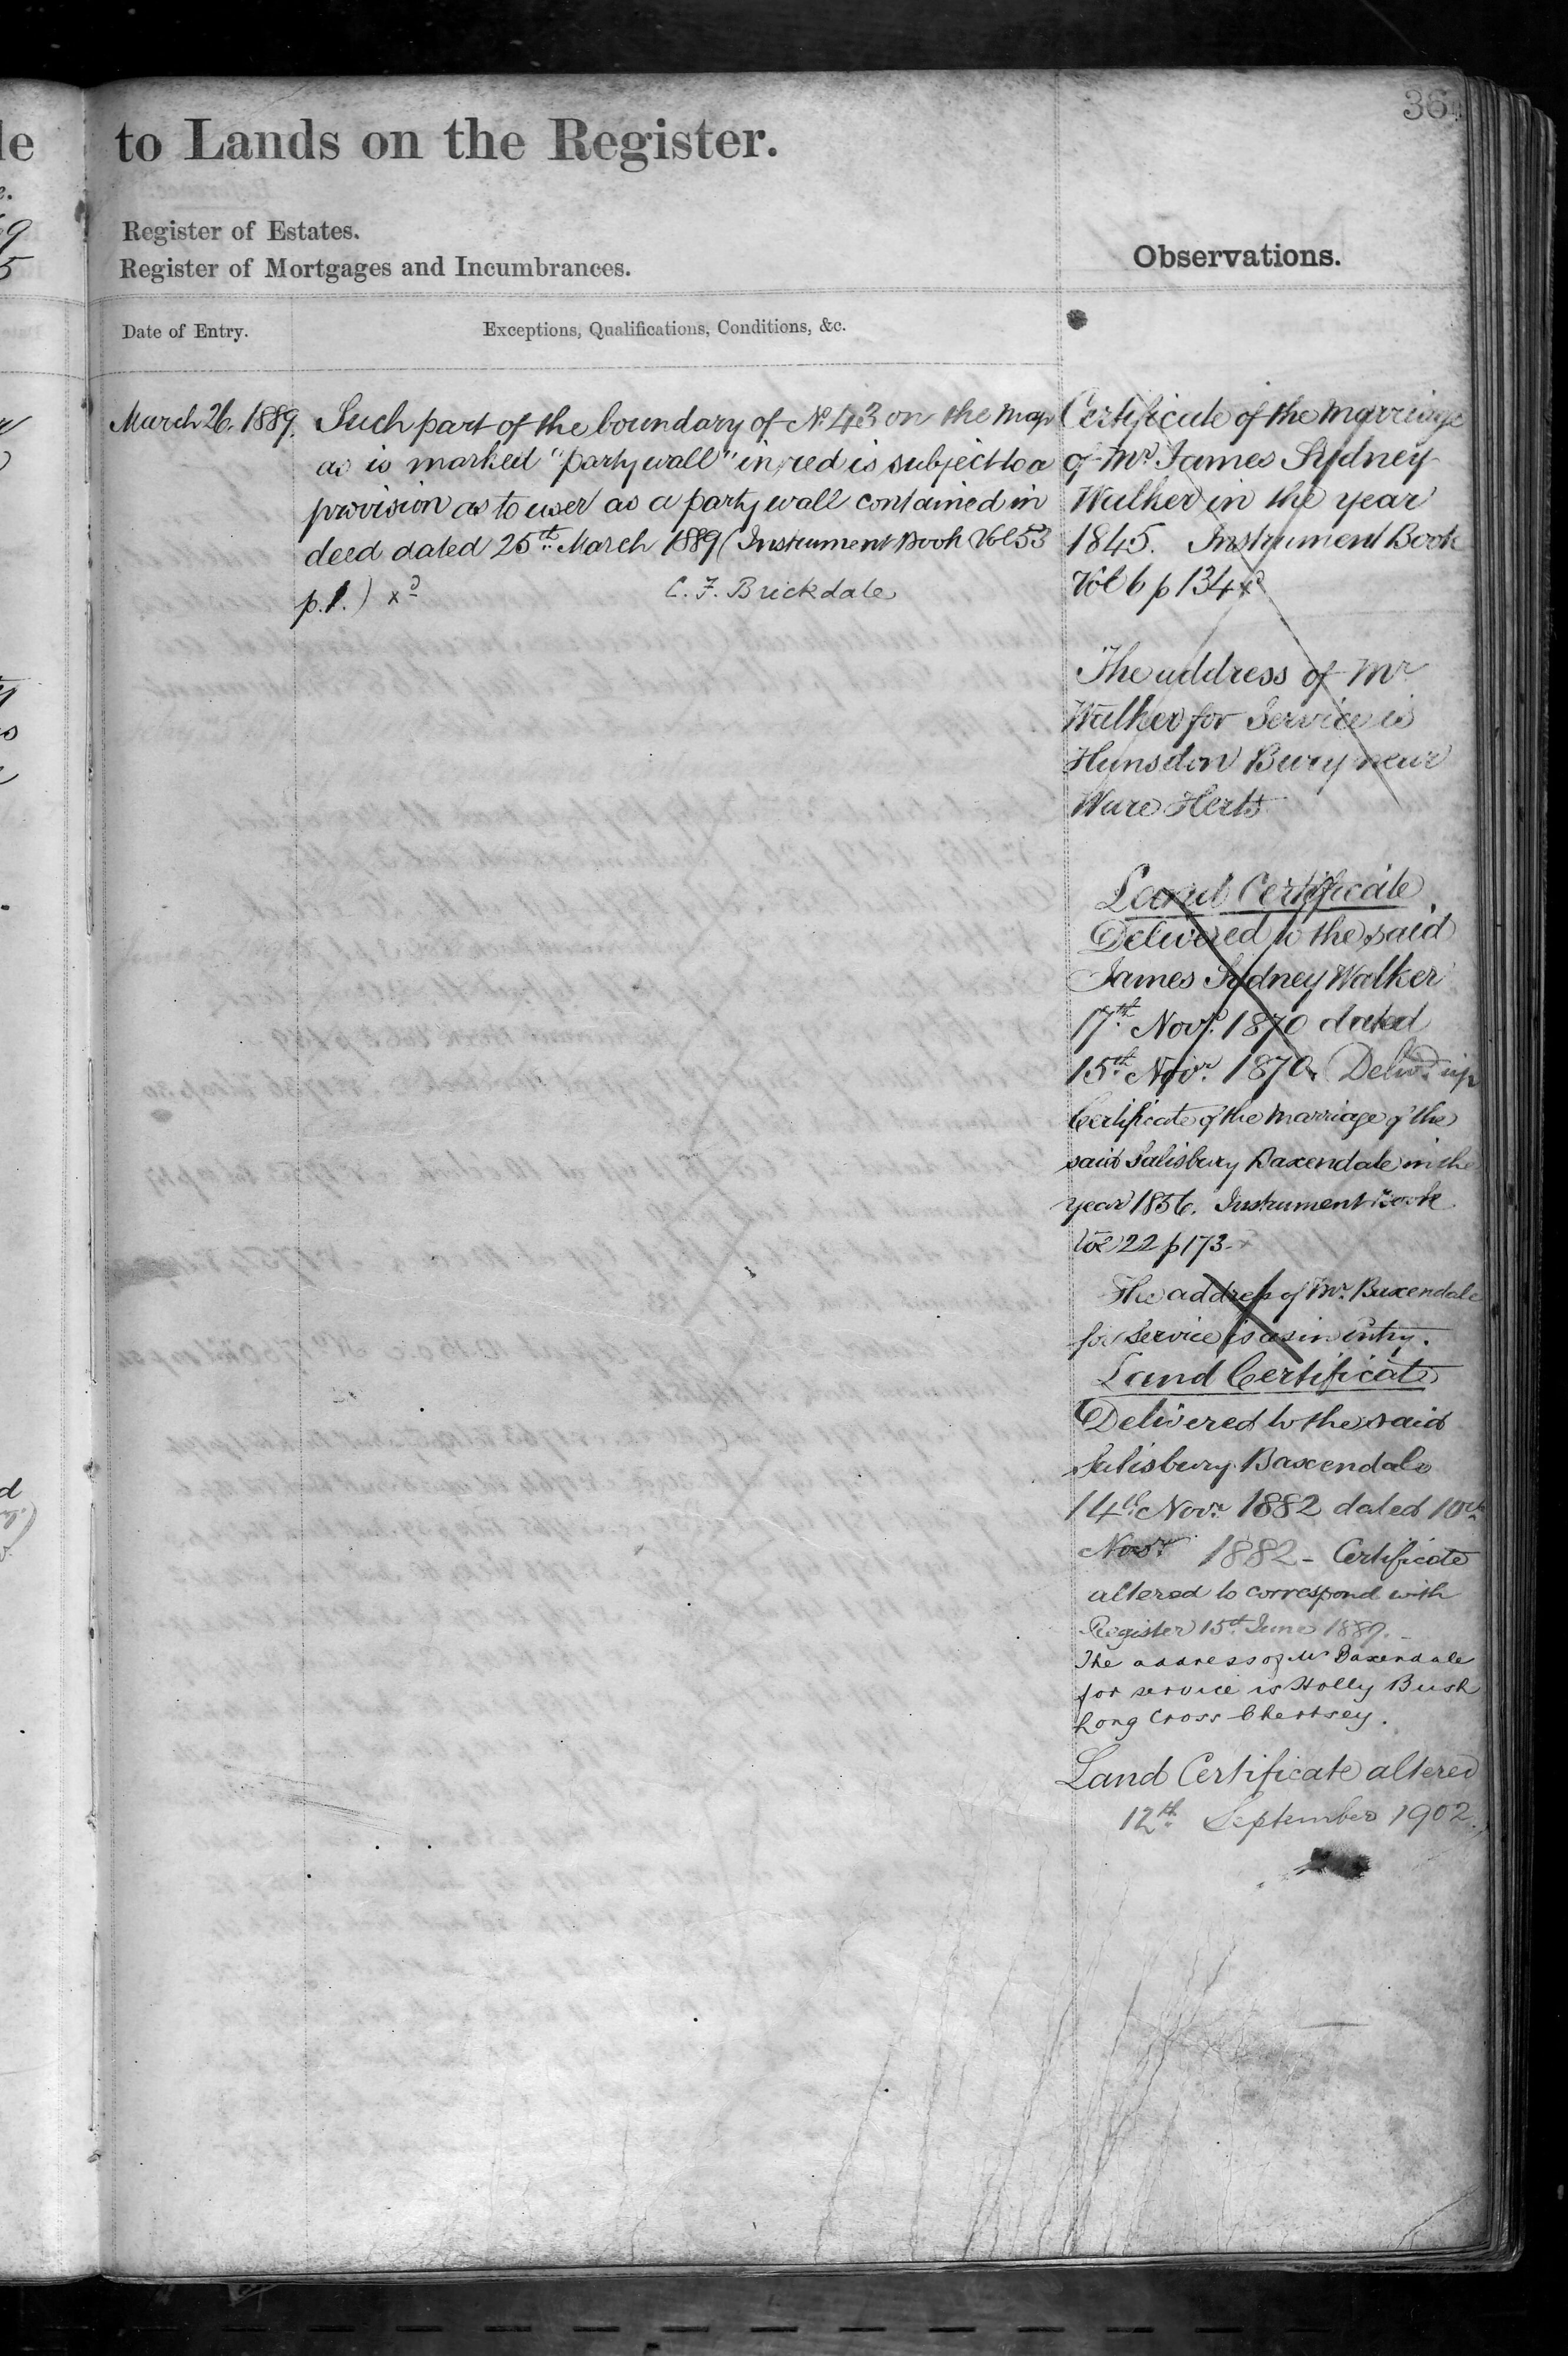 36
to Lands on the Register.
Register of Estates.
Register of Mortgages and Incumbrances.
Observations.
Date of Entry.
Exceptions, Qualifications, Conditions, &c.
March 26. 1889.
Such part of the boundary of No 43 on the map
as is marked "party wall" in red is subject to a
provision as to user as a party wall contained in
deed dated 25th March 1889 (Instrument Book Vol 53
p. 1.) xd
C. F. Brickdale
Certificate of the marriage
of Mr James Sydney
Walker in the year
1845. Instrument Book
Vol 6 p 134 xd
The address of Mr
Walker for Service is
Hunsdon Bury near
Ware Herts
Land Certificate
Delivered to the said
James Sydney Walker
17th Novr. 1870 dated
15th Novr. 1870. Delivd. up
Certificate of the Marriage of the
said Salisbury Baxendale in the
year 1856. Instrument Book
Vol 22 p 173
The address of Mr. Baxendale
for Service is as in Entry.
Land Certificate
Delivered to the said
Salisbury Baxendale
14th Novr. 1882 dated 10th
Novr. 1882 - Certificate
altered to correspond with
Register 15th June 1889.
The address of Mr Baxendale
for service is Holly Bush
Long Cross Chertsey.
Land Certificate altered
12th September 1902.